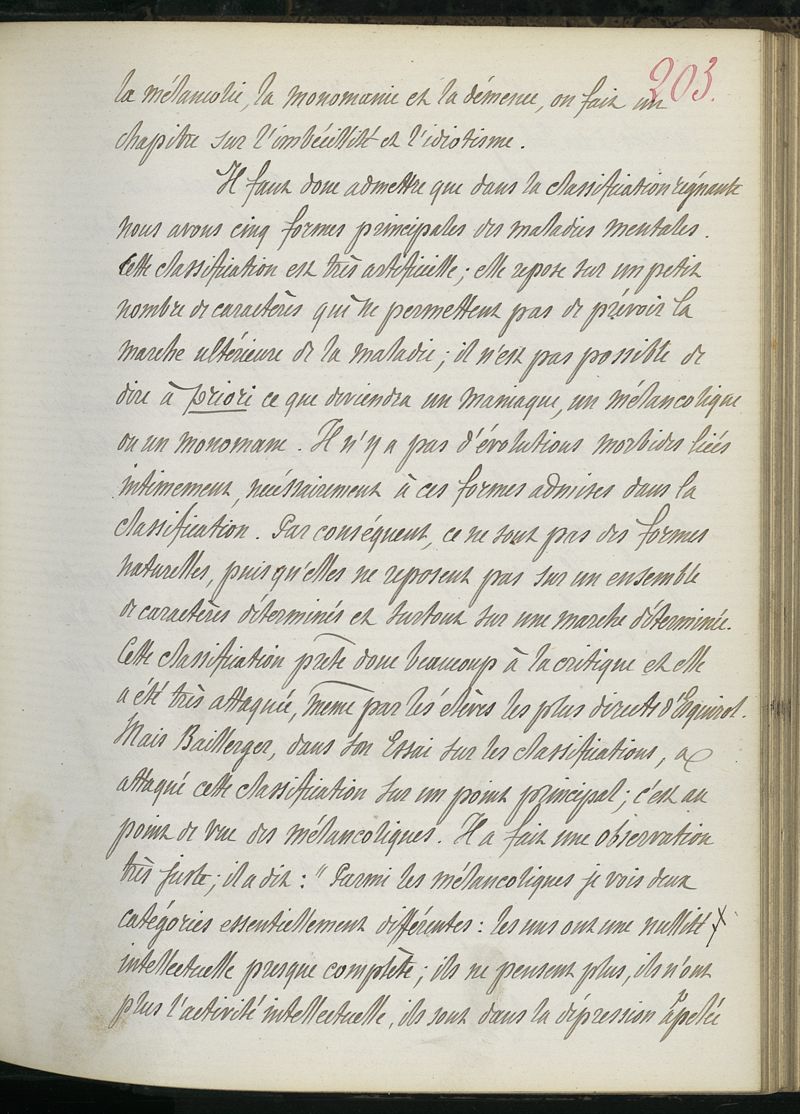 203.
la mélancolie, la monomanie et la démence, on fait un
chapitre sur l'imbécillité et l'idiotisme.
Il faut donc admettre que dans la classification régnante
nous avons cinq formes principales des maladies mentales.
Cette classification est très artificielle; elle repose sur un petit
nombre de caractères qui ne permettent pas de prévoir la
marche ultérieure de la maladie; il n'est pas possible de
dire à priori ce que deviendra un maniaque, un mélancolique
ou un monomane. Il n'y a pas d'évolutions morbides liées
intimement, nécessairement à ces formes admises dans la
classification. Par conséquent, ce ne sont pas des formes
naturelles, puisqu'elles ne reposent pas sur un ensemble
de caractères déterminés et surtout sur une marche déterminée.
Cette classification prête donc beaucoup à la critique et elle
a été très attaquée, même par les élèves les plus directs d'Esquirol.
Mais Baillerger, dans son Essai sur les classifications, a
attaqué cette classification sur un point principal; c'est au
point de vue des mélancoliques. Il a fait une observation
très juste; il a dit : "Parmi les mélancoliques je vois deux
catégories essentiellement différentes : les uns ont une nullité x
intellectuelle presque complète; ils ne pensent plus, ils n'ont
plus l'activité intellectuelle, ils sont dans la dépression appelée